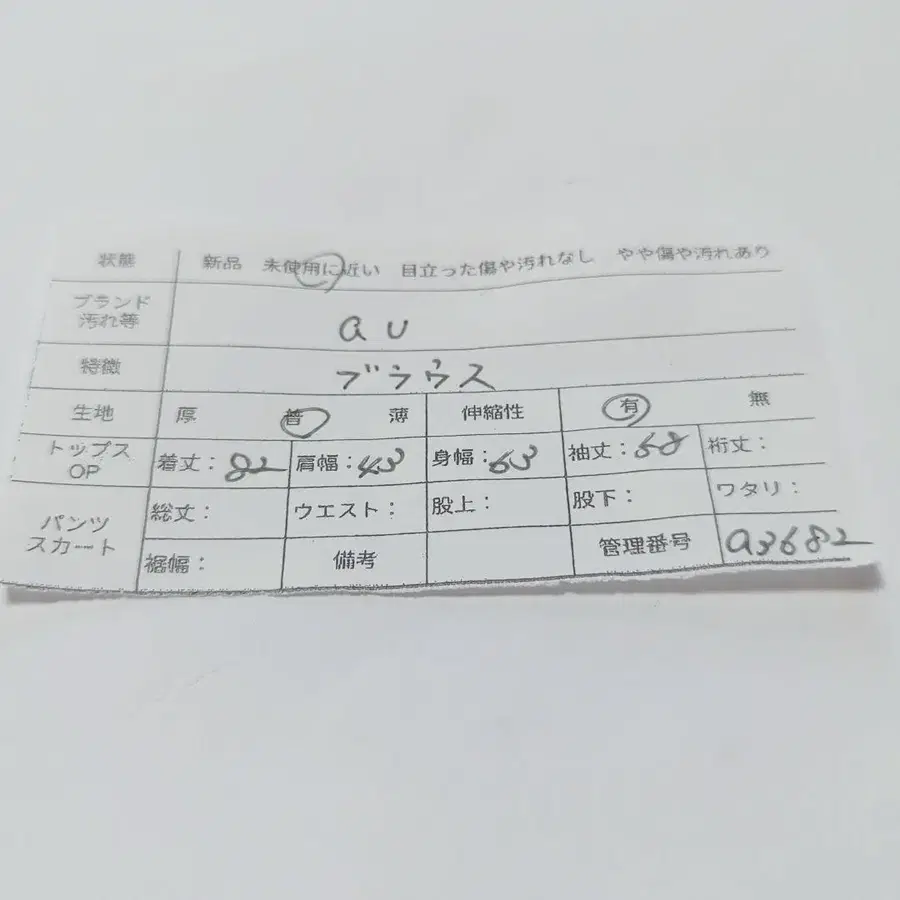 状態 新品 未使用に近い 目立った傷や汚れなし やや傷や汚れあり
ブランド
汚れ等
a u
特徴 ブラウス
生地 厚 普 薄 伸縮性 有 無
トップス
OP
着丈：82 肩幅：43 身幅：63 袖丈：58 裄丈：
パンツ
スカート
総丈： ウエスト： 股上： 股下： ワタリ：
裾幅： 備考 管理番号 a3682